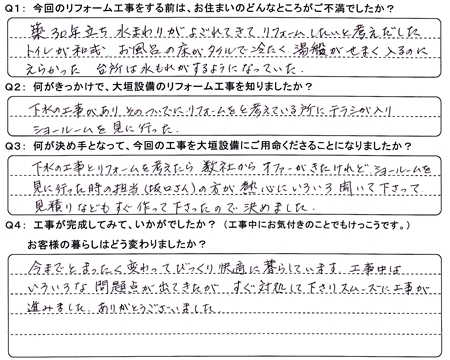 Q1：今回のリフォーム工事をする前は、お住まいのどんなところがご不満でしたか？
築30年立ち 水まわりがよごれてきてリフォームしたいと考えだした
トイレが和式 お風呂の床がタイルで冷たく、湯船がせまく入るのに
えらかった 台所は水もれがするようになっていた。
Q2：何がきっかけで、大垣設備のリフォーム工事を知りましたか？
下水の工事があり、そのついでにリフォームをと考えている所にチラシが入り
ショールームを見に行った。
Q3：何が決め手となって、今回の工事を大垣設備にご用命くださることになりましたか？
下水の工事とリフォームを考えたら 数社から オファーがきたけれど、ショールームを
見に行った時の担当(坂口さん)の方が 熱心にいろいろ聞いて下さって
見積りなどもすぐ作って下さったので 決めました。
Q4：工事が完成してみて、いかがでしたか？（工事中にお気付きのことでもけっこうです。）
お客様の暮らしはどう変わりましたか？
今までと まったく 変わって びっくり 快適に 暮らしています。工事中は
いろいろな 問題点が 出てきたが すぐ対処して 下さりスムーズに工事が
進みました。ありがとうございました